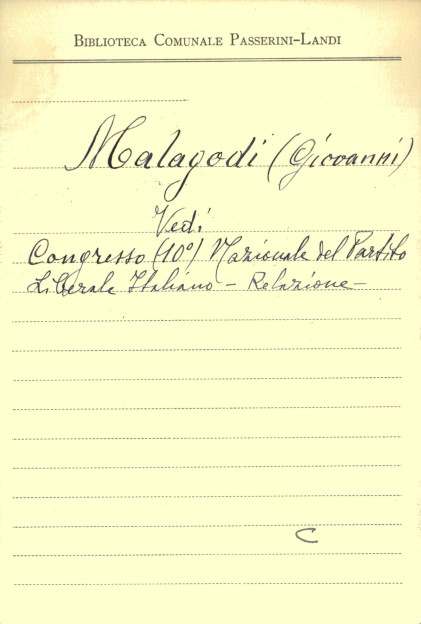 BIBLIOTECA COMUNALE PASSERINI-LANDI
Malagodi (Giovanni)
Vedi
Congresso (10°) Nazionale del Partito
Liberale Italiano - Relazione -
C